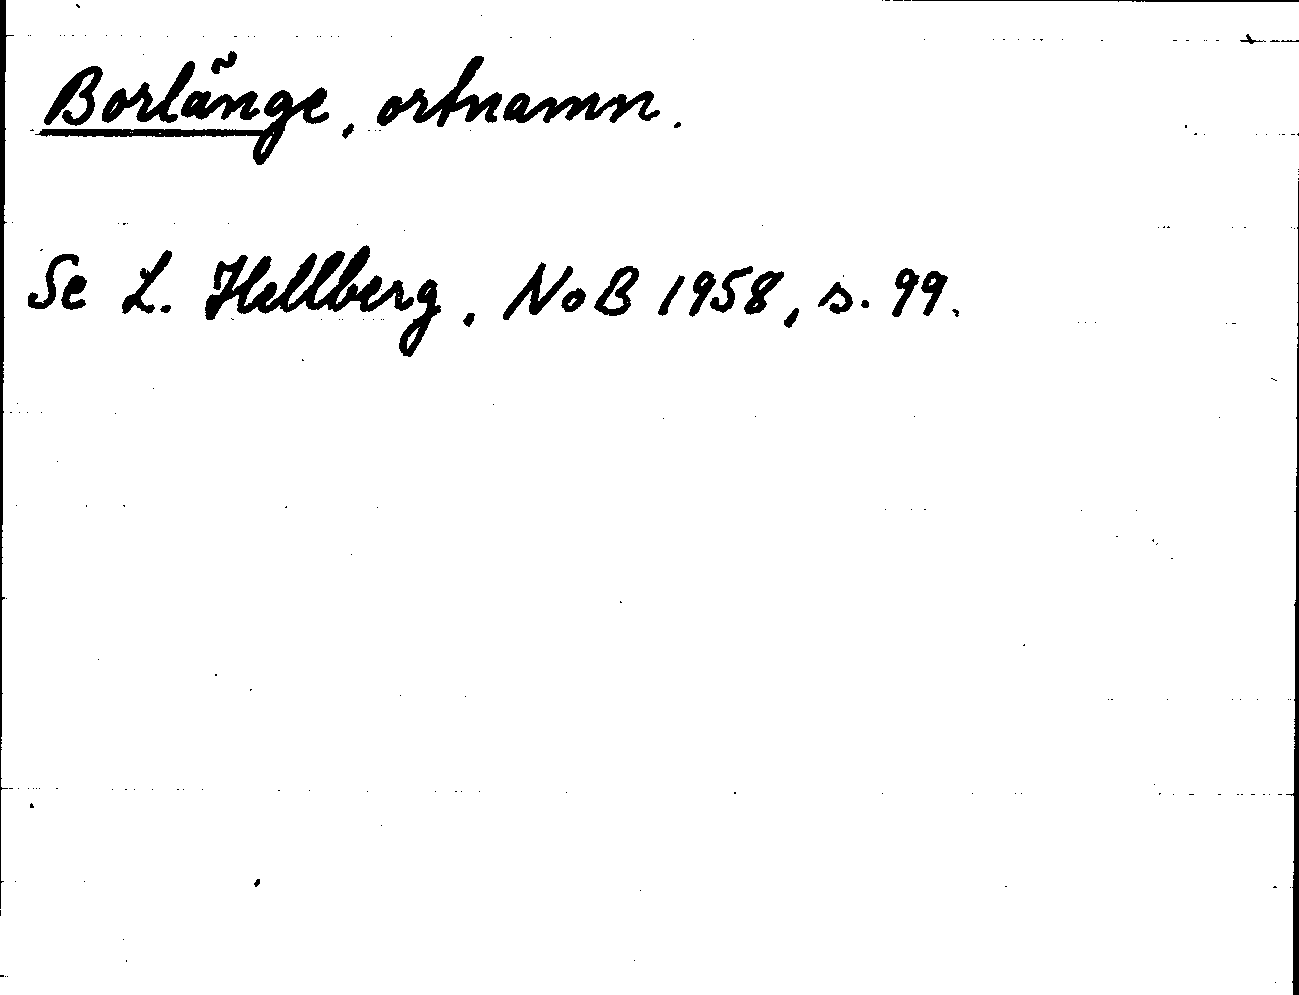 Borlänge, ortnamn.
Se L. Hellberg, NoB 1958, s. 99.